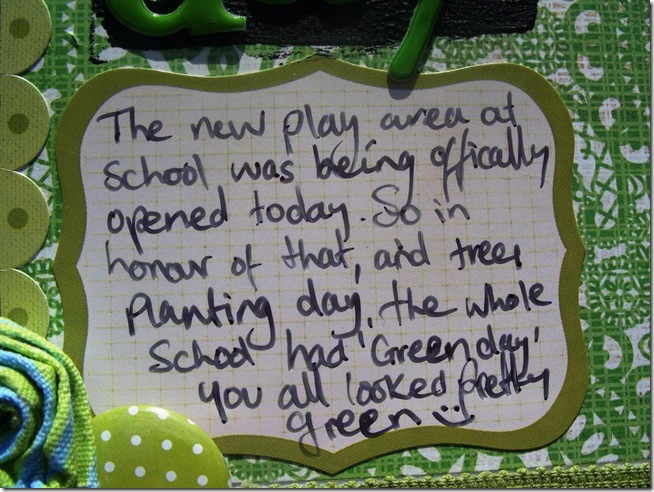 The new play area at
school was being offically
opened today. So in
honour of that, and trees
planting day, the whole
School had 'Green day'
you all looked pretty
green.